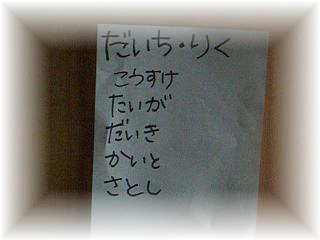 だいち・りく
こうすけ
たいが
だいき
かいと
さとし